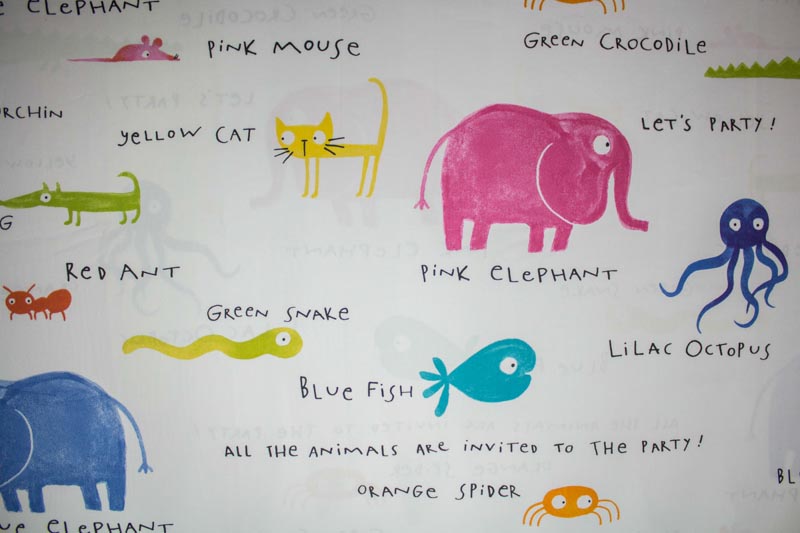 ELEPHANT
PiNK MOUSE
GREEN CROCODiLE
RCHiN
YELLOW CAT
LET'S PARTY!
G
RED ANT
PiNK ELEPHANT
GREEN SNAKE
LiLAC OCTOPUS
BLUE FiSH
ALL THE ANiMALS ARE iNViTED TO THE PARTY!
ORANGE SPiDER
BL
UE ELEPHANT